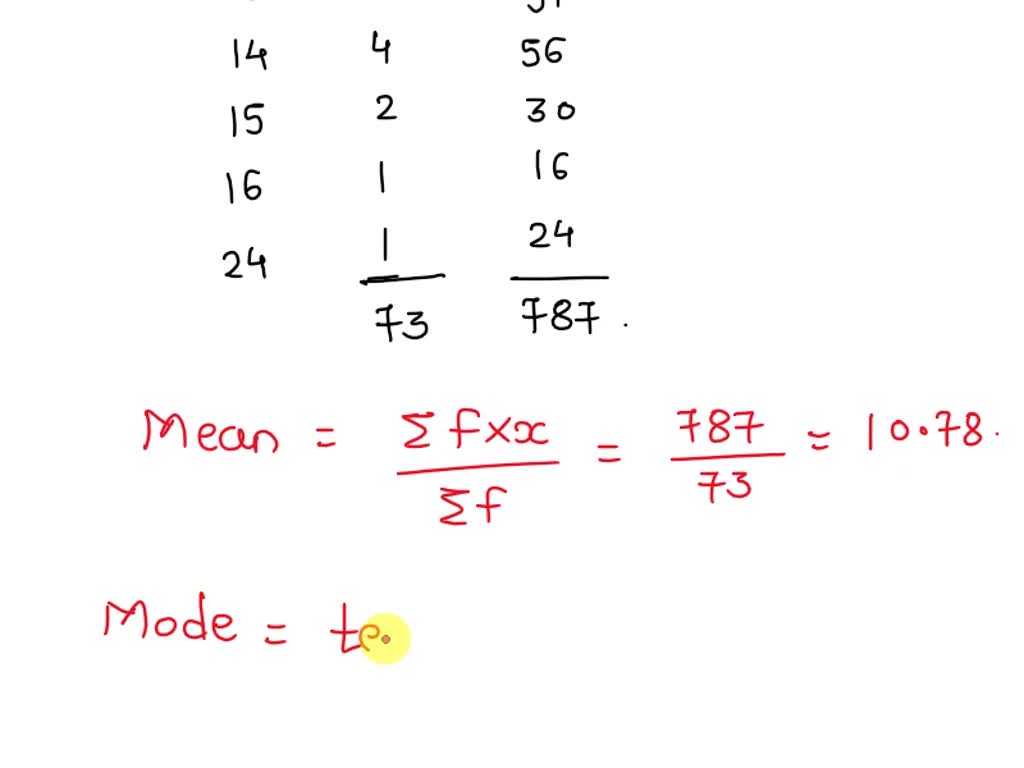 14 4 56
15 2 30
16 1 16
24 1 24
73 787.
Mean = Σf×x / Σf = 787 / 73 = 10.78.
Mode =